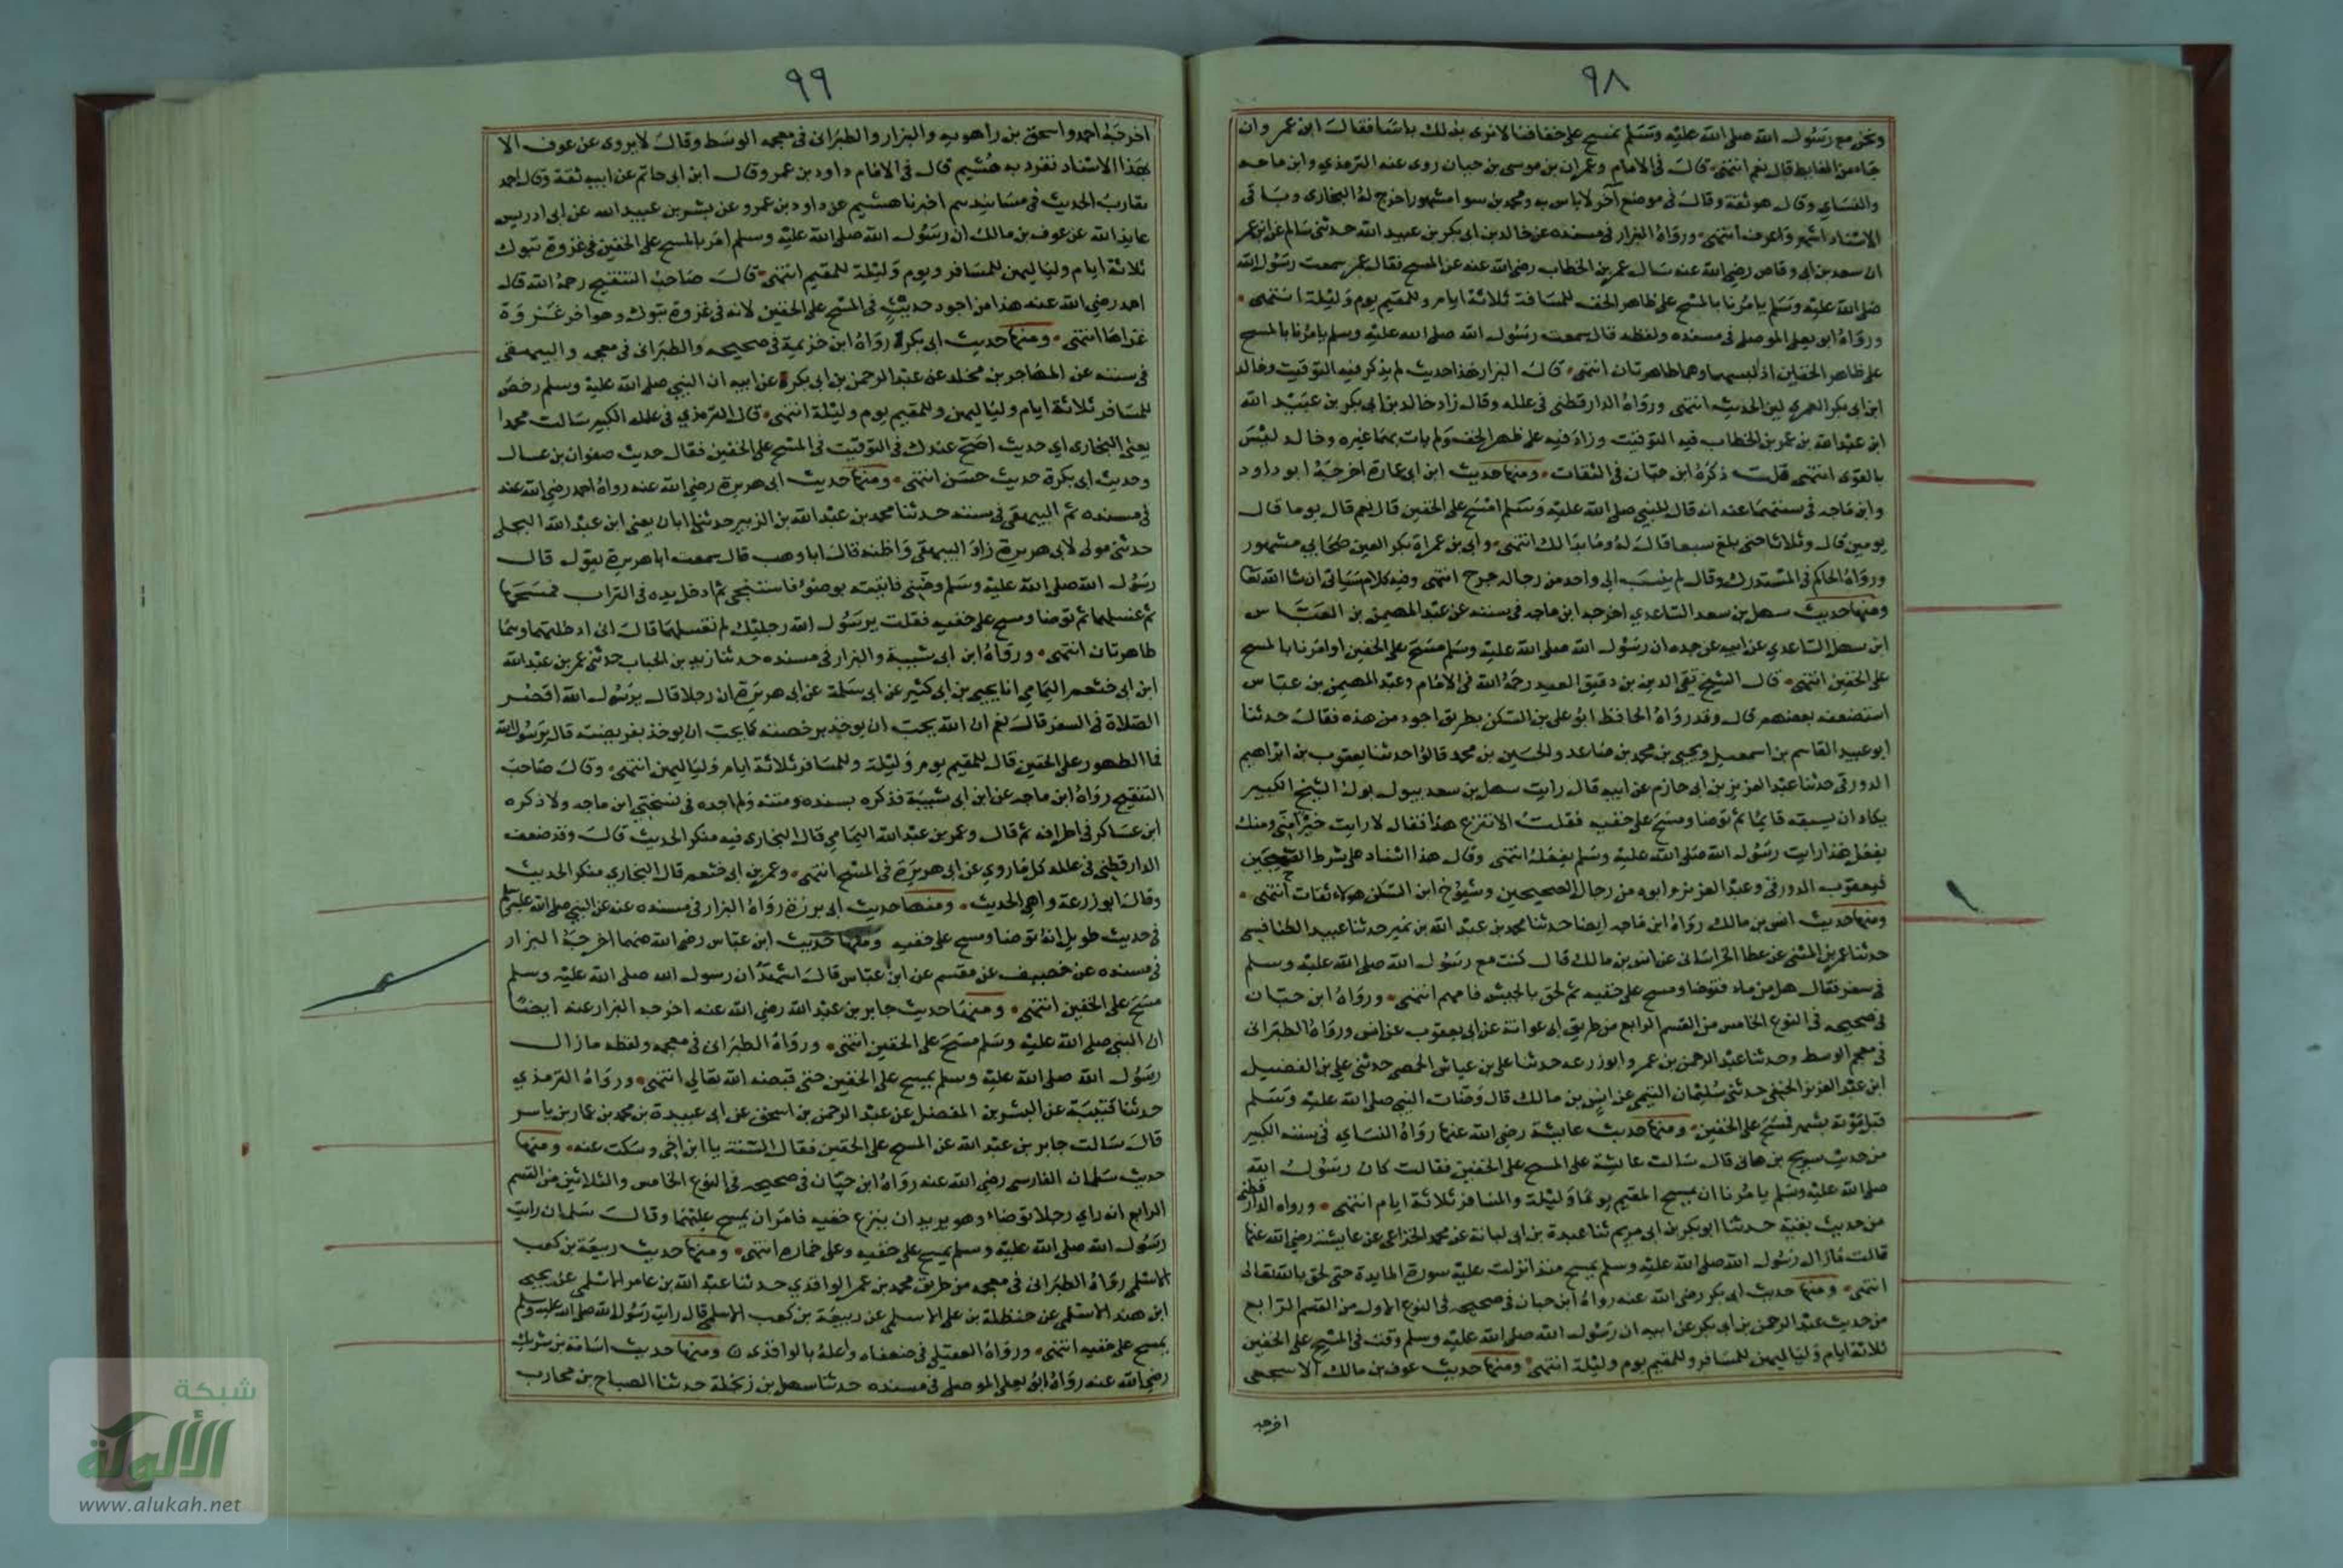 ٩٨
ونحن مع رسول الله صلى الله عليه وسلم نمسح على خفافنا لا نرى بذلك باسا فقال ابن عمر وان
جاء من الغايط قال نعم انتهى قال في الامام وعمران بن موسى بن حبان روى عنه الترمذي وابن ماجه
والنساي وقال هو ثقة وقال في موضع آخر لا باس به ومحمد بن سوا مشهور اخرج له البخارى وباقى
الاسناد اشهر واعرف انتهى ورواه البزار في مسنده عن خالد بن ابى بكر بن عبيد الله حدثنى سالم عن ابن عمر
ان سعد بن ابى وقاص رضي الله عنه سال عمر بن الخطاب رضي الله عنه عن المسح فقال عمر سمعت رسول الله
صلى الله عليه وسلم يامرنا بالمسح على ظاهر الخف للمسافة ثلاثة ايام وللمقيم يوم وليلة انتهى
ورواه ابو يعلى الموصلى في مسنده ولفظه قال سمعت رسول الله صلى الله عليه وسلم يامرنا بالمسح
على ظاهر الخفين اذ لبسهما وهما طاهرتان انتهى قال البزار هذا حديث لم يذكر فيه التوقيت وخالد
ابن ابى بكر العمري لين الحديث انتهى ورواه الدارقطنى في علله وقال زاد خالد بن ابى بكر بن عبيد الله
ابن عبد الله بن عمر بن الخطاب فيه التوقيت وزاد فيه على ظهر الخف ولم يات بهما غيره وخالد ليس
بالقوى انتهى قلت ذكره ابن حبان في الثقات ومنها حديث ابن ابى عمارة اخرجه ابو داود
وابن ماجه في سننهما عنه انه قال للنبي صلى الله عليه وسلم امسح على الخفين قال نعم قال يوما قال
يومين قال وثلاثا حتى بلغ سبعا قال له وما بدا لك انتهى وابى بن عمراة بكسر العين صحابي مشهور
ورواه الحاكم في المستدرك وقال لم ينسب الى واحد من رجاله جرح انتهى وفيه كلام سياتى ان شا الله تعا
ومنها حديث سهل بن سعد الساعدي اخرجه ابن ماجه في سننه عن عبد المهيمن بن العباس
ابن سهل الساعدي عن ابيه عن جده ان رسول الله صلى الله عليه وسلم مسح على الخفين او امرنا بالمسح
على الخفين انتهى قال الشيخ تقى الدين بن دقيق العيد رحمه الله في الامام وعبد المهيمن بن عباس
استضعفه بعضهم قال وقد رواه الحافظ ابو على بن السكن بطريق اجود من هذه فقال حدثنا
ابو عبيد القاسم بن اسمعيل ويحيى بن محمد بن صاعد والحسين بن محمد قالوا حدثنا يعقوب بن ابراهيم
الدورقى حدثنا عبد العزيز بن ابى حازم عن ابيه قال رايت سهل بن سعد يبول بول الشيخ الكبير
يكاد ان يسبقه قايما ثم توضا ومسح على خفيه فقلت الا تنزع هذا فقال لا رايت خيرا منى ومنك
يفعل هذا رايت رسول الله صلى الله عليه وسلم يفعله انتهى وقال هذا اسناد على شرط الصحيحين
فيعقوب الدورقى وعبد العزيز وابوه من رجال الصحيحين وشيوخ ابن السكن هولاء ثقات انتهى
ومنها حديث انس بن مالك رواه ابن ماجه ايضا حدثنا محمد بن عبد الله بن نمير حدثنا عبيد الطنافسي
حدثنا عمر بن المثنى عن عطا الخراسانى عن انس بن مالك قال كنت مع رسول الله صلى الله عليه وسلم
في سفر فقال هل من ماء فتوضا ومسح على خفيه ثم لحق بالجيش فامهم انتهى ورواه ابن حبان
في صحيحه في النوع الخامس من القسم الرابع من طريق ابى عوانة عن ابى يعقوب عن انس ورواه الطبرانى
في معجم الوسط وحدثنا عبد الرحمن بن عمرو ابو زرعه حدثنا على بن عياش الحمصي حدثنى على بن الفضيل
ابن عبد العزيز الحنفي حدثنى سليمان التيمي عن انس بن مالك قال وضات النبي صلى الله عليه وسلم
قبل موته بشهر فمسح على الخفين ومنها حديث عايشة رضي الله عنها رواه النساي في سننه الكبير
من حديث سريح بن هانى قال سالت عايشة على المسح على الخفين فقالت كان رسول الله
صلى الله عليه وسلم يامرنا ان يمسح المقيم يوما وليلة والمسافر ثلاثة ايام انتهى ورواه الدارقطنى
من حديث بقية حدثنا ابو بكر بن ابى مريم ثنا عبدة بن ابى لبانة عن محمد الخزاعى عن عايشة رضي الله عنها
قالت مازال رسول الله صلى الله عليه وسلم يمسح منذ انزلت عليه سورة المايدة حتى لحق بالله تعالى
انتهى ومنها حديث ابى بكر رضي الله عنه رواه ابن حبان في صحيحه في النوع الاول من القسم الرابع
من حديث عبد الرحمن بن ابى بكر عن ابيه ان رسول الله صلى الله عليه وسلم وقت في المسح على الخفين
ثلاثة ايام ولياليهن للمسافر وللمقيم يوم وليلة انتهى ومنها حديث عوف بن مالك الاسجعى
اخرجه
٩٩
اخرجه احمد واسحق بن راهويه والبزار والطبرانى في معجمه الوسط وقال لا يروى عن عوف الا
بهذا الاسناد تفرد به هُشيم قال في الامام داود بن عمرو قال ابن ابى حاتم عن ابيه ثقة وقال احمد
مقارب الحديث في مسانيدهم اخبرنا هشيم عن داود بن عمرو عن بشر بن عبيد الله عن ابى ادريس
عايذ الله عن عوف بن مالك ان رسول الله صلى الله عليه وسلم امر بالمسح على الخفين في غزوة تبوك
ثلاثة ايام ولياليهن للمسافر ويوم وليلة للمقيم انتهى قال صاحب التنقيح رحمه الله قال
احمد رضي الله عنه هذا من اجود حديث في المسح على الخفين لانه في غزوة تبوك وهو اخر غزوة
غزاها انتهى ومنها حديث ابى بكرة رواه ابن خزيمة في صحيحه والطبرانى في معجمه والبيهقى
في سننه عن المهاجر بن مخلد عن عبد الرحمن بن ابى بكرة عن ابيه ان النبي صلى الله عليه وسلم رخص
للمسافر ثلاثة ايام ولياليهن وللمقيم يوم وليلة انتهى قال الترمذي في علله الكبير سالت محمدا
يعنى البخارى اى حديث اصح عندك في التوقيت في المسح على الخفين فقال حديث صفوان بن عسال
وحديث ابى بكرة حديث حسن انتهى ومنها حديث ابى هريرة رضي الله عنه رواه احمد رضي الله عنه
في مسنده ثم البيهقى في سننه حدثنا محمد بن عبد الله بن الزبير حدثنا ابان يعنى ابن عبد الله البجلى
حدثنى مولى لابى هريرة زاد البيهقى واظنه قال ابا وهب قال سمعت ابا هريرة يقول قال
رسول الله صلى الله عليه وسلم وضينى فاتيته بوضوء فاستنجى ثم ادخل يده في التراب فمسحها
ثم غسلهما ثم توضا ومسح على خفيه فقلت يرسول الله رجليك لم تغسلهما قال انى ادخلتهما وهما
طاهرتان انتهى ورواه ابن ابى شيبة والبزار في مسنده حدثنا زيد بن الحباب حدثنى عمر بن عبد الله
ابن ابى خثعم اليمامي انا يحيى بن ابى كثير عن ابى سلمة عن ابى هريرة ان رجلا قال يرسول الله اقصر
الصلاة في السفر قال نعم ان الله يحب ان يوخذ برخصته كما يحب ان يوخذ بفريضته قال يرسول الله
فما الطهور على الخفين قال للمقيم يوم وليلة وللمسافر ثلاثة ايام ولياليهن انتهى وقال صاحب
التنقيح رواه ابن ماجه عن ابن ابى شيبة فذكره بسنده ومتنه ولم اجده في نسختي ابن ماجه ولا ذكره
ابن عساكر في اطرافه ثم قال وعمر بن عبد الله اليمامي قال البخارى فيه منكر الحديث قال وقد ضعف
الدارقطنى في علله كل ما روي عن ابى هريرة في المسح انتهى وعمر بن ابى خثعم قال البخاري منكر الحديث
وقال ابو زرعة واهي الحديث ومنها حديث ابى برزة رواه البزار في مسنده عنه عن النبي صلى الله عليه وسلم
في حديث طويل انه توضا ومسح على خفيه ومنها حديث ابن عباس رضي الله عنهما اخرجه البزار
في مسنده عن خصيف عن مقسم عن ابن عباس قال اشهد ان رسول الله صلى الله عليه وسلم
مسح على الخفين انتهى ومنها حديث جابر بن عبد الله رضي الله عنه اخرجه البزار عنه ايضا
ان النبي صلى الله عليه وسلم مسح على الخفين انتهى ورواه الطبرانى في معجمه ولفظه مازال
رسول الله صلى الله عليه وسلم يمسح على الخفين حتى قبضه الله تعالي انتهى ورواه الترمذي
حدثنا قتيبة عن البشر بن المفضل عن عبد الرحمن بن اسحق عن ابى عبيدة بن محمد بن عمار بن ياسر
قال سالت جابر بن عبد الله عن المسح على الخفين فقال السنة يا ابن اخى وسكت عنه ومنها
حديث سلمان الفارسى رضي الله عنه رواه ابن حبان في صحيحه في النوع الخامس والثلاثين من القسم
الرابع انه راي رجلا توضاء وهو يريد ان ينزع خفيه فامر ان يمسح عليهما وقال سلمان رايت
رسول الله صلى الله عليه وسلم يمسح على خفيه وعلى خماره انتهى ومنها حديث ربيعة بن كعب
الاسلمى رواه الطبرانى في معجمه من طريق محمد بن عمر الواقدي حدثنا عبد الله بن عامر الاسلمى عن يحيى
ابن هند الاسلمى عن حنظلة بن على الاسلمى عن ربيعة بن كعب الاسلمى قال رايت رسول الله صلى الله عليه وسلم
يمسح على خفيه انتهى ورواه العقيلي في ضعفاه واعله بالواقدى ومنها حديث اسامة بن شريك
رضي الله عنه رواه ابو يعلى الموصلى في مسنده حدثنا سهل بن زنجلة حدثنا الصباح بن محارب
شبكة
الألوكة
www.alukah.net